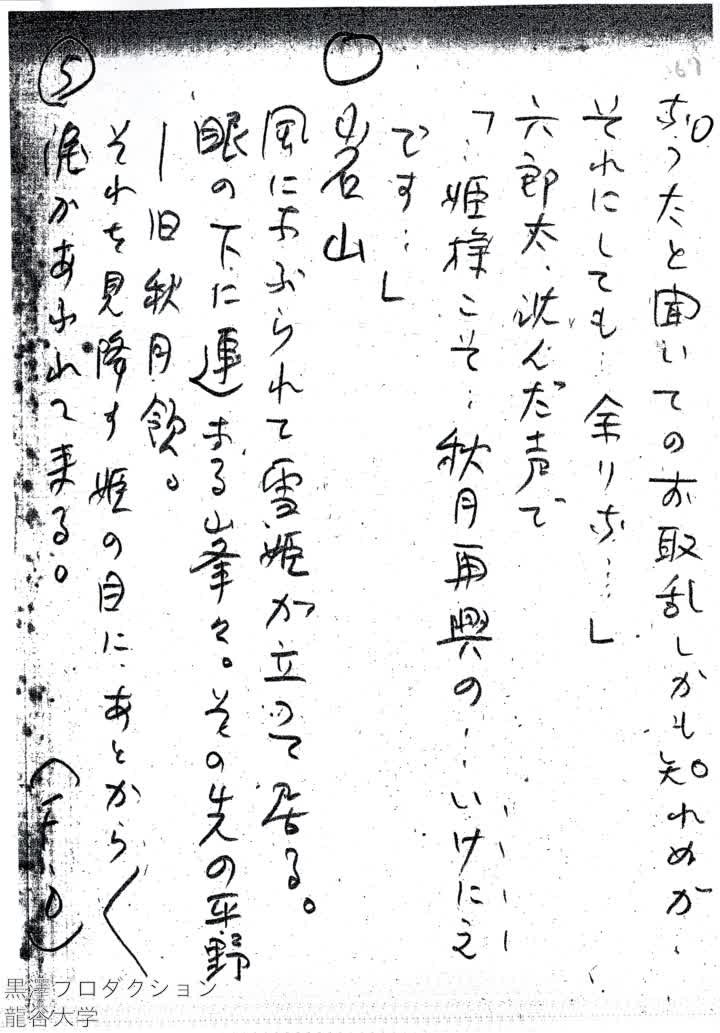 なつたと聞いてのお取乱しかも知れぬが…
それにしても…余りな…」
六郎太、沈んだ声で
「…姫様こそ…秋月再興の…いけにえ
です…」
岩山
風にあぶられて雪姫が立つて居る。
眼の下に連なる峯々。その先の平野
―旧秋月領。
それを見降す姫の目に、あとから〱
涙があふれて来る。
(F・O)
5
67
黒澤プロダクション
龍谷大学